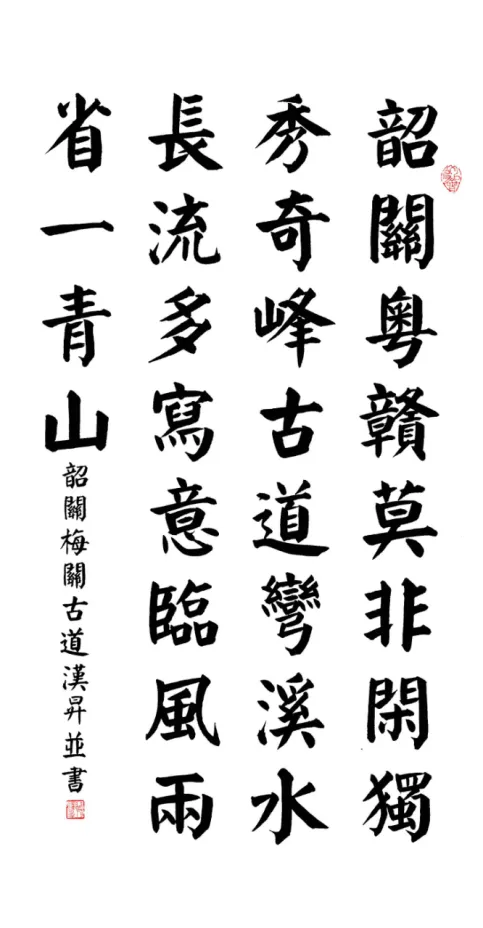 韶關粵贛莫非閑獨
秀奇峰古道彎溪水
長流多寫意臨風兩
省一青山
韶關梅關古道漢昇並書